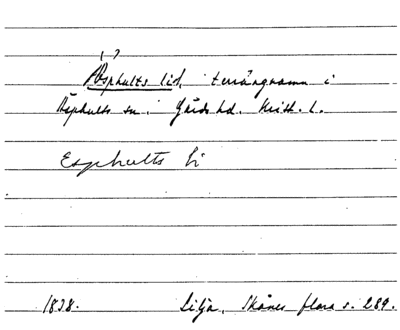 ! ?
Äsphults lid, terrängnamn i
Äsphults sn, Gärds hd. Krist. l.
Esphults li
1838. Lilja, Skånes flora s. 289.